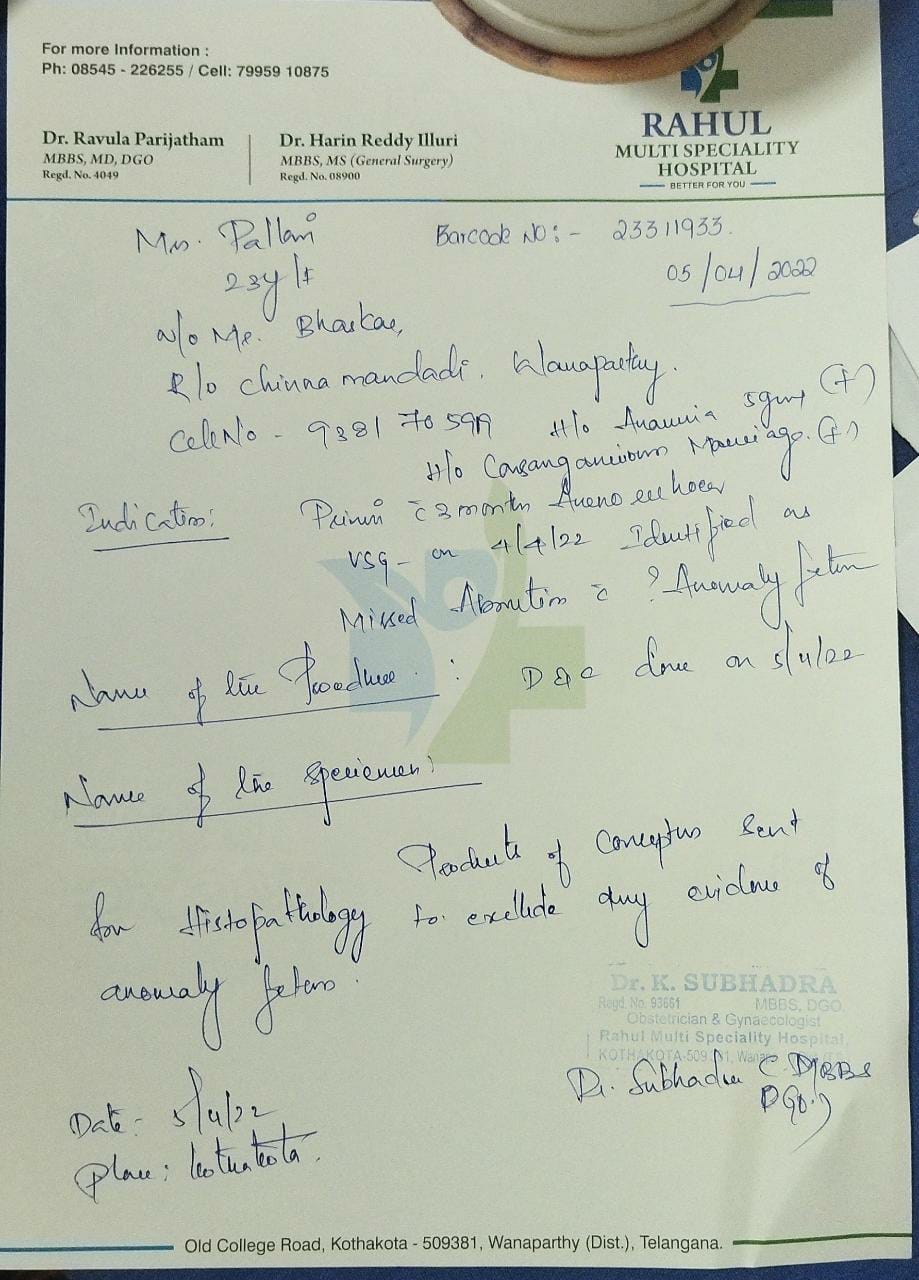 For more Information :
Ph: 08545 - 226255 / Cell: 79959 10875
Dr. Ravula Parijatham
MBBS, MD, DGO
Regd. No. 4049
Dr. Harin Reddy Illuri
MBBS, MS (General Surgery)
Regd. No. 08900
RAHUL
MULTI SPECIALITY
HOSPITAL
BETTER FOR YOU
Mrs. Pallavi
Barcode No:- 23311933.
23y/f
05/04/2022
w/o Mr. Bhaskar,
R/o Chinna mandadi, Wanaparthy.
Cell No -
H/o Anaemia (+)
H/o (+)
Indication: Primi c̄ 3 months
USG - on 4/4/22 Identified as
Missed Abortion c̄ ? Anomaly fetus
Name of the Procedure : D & C done on 5/4/22
Name of the Specimen:
Products of Conceptus Sent
for Histopathology to exclude any evidence of
anomaly fetus.
Dr. K. SUBHADRA
Regd. No. 93661 MBBS, DGO
Obstetrician & Gynaecologist
Rahul Multi Speciality Hospital,
KOTHAKOTA-509
Dr. Subhadra (MBBS
DGO.)
Date:- 5/4/22
Place: Kothakota.
Old College Road, Kothakota - 509381, Wanaparthy (Dist.), Telangana.